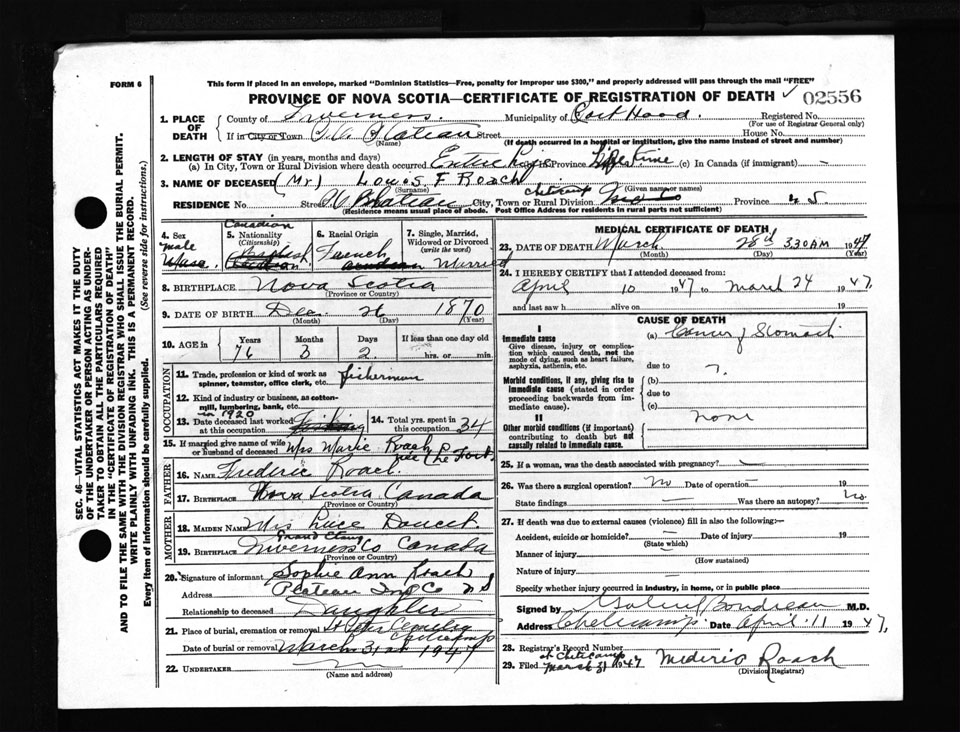 FORM 6
This form if placed in an envelope, marked "Dominion Statistics—Free, penalty for improper use $300," and properly addressed will pass through the mail "FREE"
PROVINCE OF NOVA SCOTIA—CERTIFICATE OF REGISTRATION OF DEATH
02556
1. PLACE OF DEATH
County of Inverness. Municipality of Port Hood. Registered No.
(For use of Registrar General only)
If in City or Town Plateau Street House No.
(Name) (If death occurred in a hospital or institution, give the name instead of street and number)
2. LENGTH OF STAY (in years, months and days)
(a) In City, Town or Rural Division where death occurred Entire Life Province Life Time (c) In Canada (if immigrant) —
3. NAME OF DECEASED (Mr) Louis F Roach
(Surname) (Given name or names)
RESIDENCE No. Street Plateau City, Town or Rural Division Cheticamp Province N S
(Residence means usual place of abode. Post Office Address for residents in rural parts not sufficient)
4. Sex male
5. Nationality (Citizenship) Canadian
6. Racial Origin French
7. Single, Married, Widowed or Divorced (write the word) Married
8. BIRTHPLACE Nova Scotia
(Province or Country)
9. DATE OF BIRTH Dec. 26 1870
(Month) (Day) (Year)
10. AGE in Years Months Days If less than one day old
76 3 2 hrs. or min.
OCCUPATION
11. Trade, profession or kind of work as spinner, teamster, office clerk, etc. fisherman
12. Kind of industry or business, as cotton-mill, lumbering, bank, etc.
13. Date deceased last worked at this occupation in 1920 Fishing
14. Total yrs. spent in this occupation 34
15. If married give name of wife or husband of deceased Mrs Marie Roach née Le Fort
FATHER
16. NAME Frederic Roach
17. BIRTHPLACE Nova Scotia Canada
MOTHER
18. MAIDEN NAME Mrs Luce Doucet.
19. BIRTHPLACE Grand Etang Inverness Co Canada
(Province or Country)
20. Signature of informant Sophie Ann Roach
Address Plateau Inv Co N S
Relationship to deceased Daughter
21. Place of burial, cremation or removal St Peter Cemetery Cheticamp
Date of burial or removal March 31st 1947
22. UNDERTAKER
(Name and address)
MEDICAL CERTIFICATE OF DEATH
23. DATE OF DEATH March 28th 3.30 AM 1947
(Month) (Day) (Year)
24. I HEREBY CERTIFY that I attended deceased from:
April 10 1947 to March 24 1947.
and last saw h alive on 19
CAUSE OF DEATH
I
Immediate cause
Give disease, injury or complication which caused death, not the mode of dying, such as heart failure, asphyxia, asthenia, etc.
(a) Cancer of Stomach
due to ?.
Morbid conditions, if any, giving rise to immediate cause (stated in order proceeding backwards from immediate cause).
(b)
due to
(c)
II
Other morbid conditions (if important) contributing to death but not causally related to immediate cause.
none
25. If a woman, was the death associated with pregnancy?
26. Was there a surgical operation? No Date of operation — 19
State findings — Was there an autopsy? No.
27. If death was due to external causes (violence) fill in also the following:—
Accident, suicide or homicide? Date of injury 19
(State which)
Manner of injury
(How sustained)
Nature of injury
Specify whether injury occurred in industry, in home, or in public place
Signed by Boudreau M.D.
Address Cheticamp. Date April 11 1947.
28. Registrar's Record Number
at Cheticamp
29. Filed March 31 1947 Mederic Roach
(Division Registrar)
SEC. 46—VITAL STATISTICS ACT MAKES IT THE DUTY
OF THE UNDERTAKER OR PERSON ACTING AS UNDER-
TAKER TO OBTAIN ALL THE PARTICULARS REQUIRED
IN THE "CERTIFICATE OF REGISTRATION OF DEATH"
AND TO FILE THE SAME WITH THE DIVISION REGISTRAR WHO SHALL ISSUE THE BURIAL PERMIT.
WRITE PLAINLY WITH UNFADING INK. THIS IS A PERMANENT RECORD.
Every item of information should be carefully supplied. (See reverse side for instructions.)